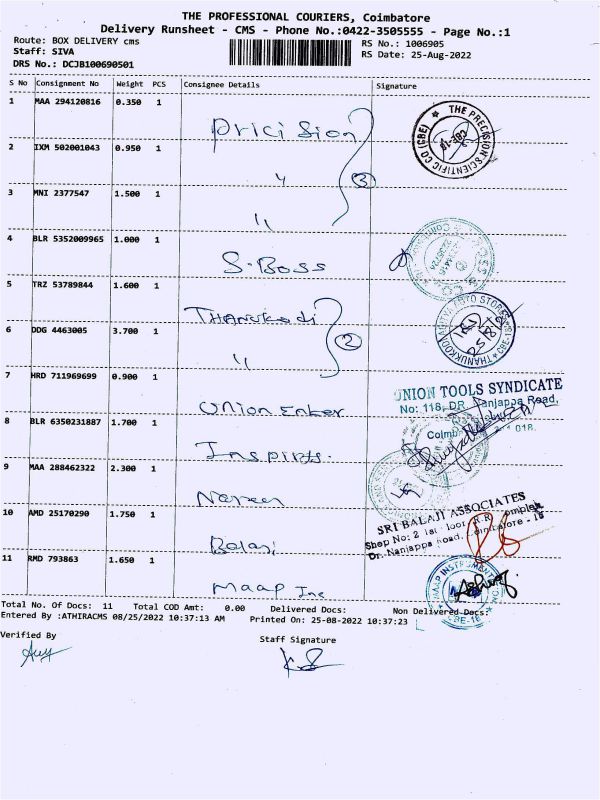 THE PROFESSIONAL COURIERS, Coimbatore
Delivery Runsheet - CMS - Phone No.:0422-3505555 - Page No.:1
Route: BOX DELIVERY cms
RS No.: 1006905
Staff: SIVA
RS Date: 25-Aug-2022
DRS No.: DCJB100690501
S No Consignment No Weight PCS Consignee Details Signature
1 MAA 294120816 0.350 1 Pricision
THE PRECISION SCIENTIFIC CO (CBE) CBE-18
2 IXM 502001043 0.950 1 "
3
3 MNI 2377547 1.500 1 "
4 BLR 5352009965 1.000 1 S-Boss
5 TRZ 53789844 1.600 1 Thanukodi
6 DDG 4463005 3.700 1 "
2
7 HRD 711969699 0.900 1 Union Enter
UNION TOOLS SYNDICATE
No: 118, DR. Nanjappa Road,
8 BLR 6350231887 1.700 1 Inspirts.
9 MAA 288462322 2.300 1 Nareen
SRI BALAJI ASSOCIATES
10 AMD 25170290 1.750 1 Balaji
Dr. Nanjappa Road, Coimbatore - 18
11 RMD 793863 1.650 1 Maap Inc
MAAP INSTRUMENTS INC. CBE-18
Total No. Of Docs: 11 Total COD Amt: 0.00 Delivered Docs: Non Delivered Docs:
Entered By :ATHIRACMS 08/25/2022 10:37:13 AM Printed On: 25-08-2022 10:37:23
Verified By
Staff Signature